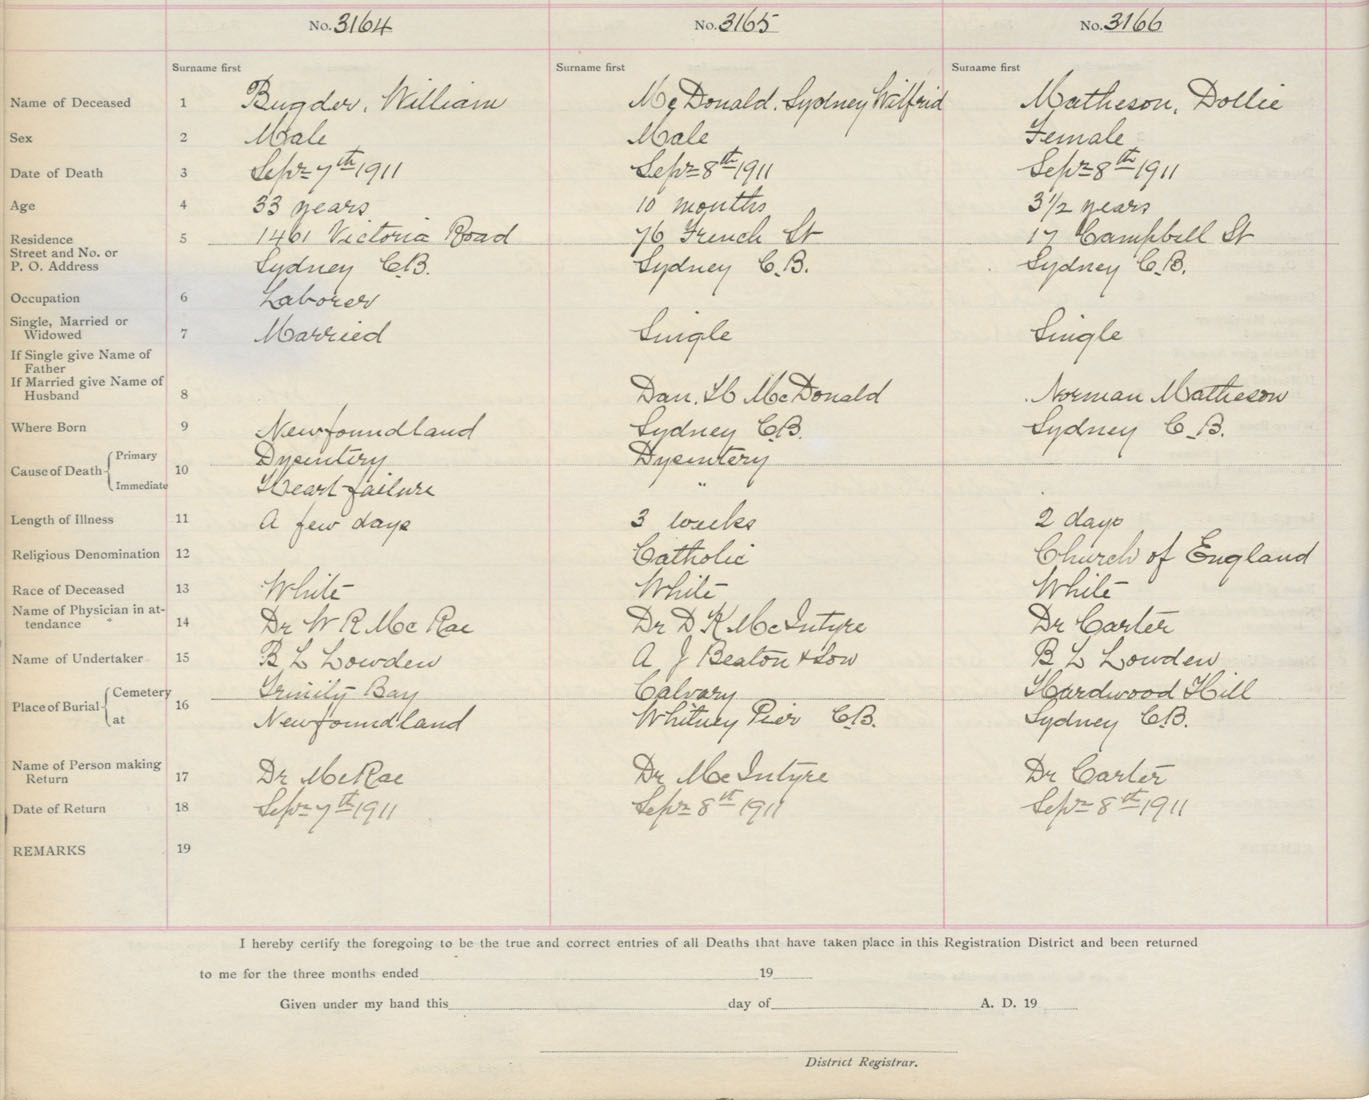 No. 3164 No. 3165 No. 3166
Surname first Surname first Surname first
Name of Deceased 1 Bugder, William McDonald, Sydney Wilfrid Matheson, Dollie
Sex 2 Male Male Female
Date of Death 3 Sept 7th 1911 Sept 8th 1911 Sept 8th 1911
Age 4 33 years 10 months 3 1/2 years
Residence 5 1461 Victoria Road 76 French St 17 Campbell St
Street and No. or
P. O. Address Sydney C.B. Sydney C.B. Sydney C.B.
Occupation 6 Laborer
Single, Married or
Widowed 7 Married Single Single
If Single give Name of
Father
If Married give Name of
Husband 8 Dan. H McDonald Norman Matheson
Where Born 9 Newfoundland Sydney C.B. Sydney C.B.
Cause of Death 10 Primary Dysentery Dysentery
Immediate Heart failure "
Length of Illness 11 A few days 3 weeks 2 days
Religious Denomination 12 Catholic Church of England
Race of Deceased 13 White White White
Name of Physician in at-
tendance 14 Dr W R McRae Dr D K McIntyre Dr Carter
Name of Undertaker 15 B L Lowden A J Beaton & Son B L Lowden
Place of Burial 16 Cemetery Trinity Bay Calvary Hardwood Hill
at Newfoundland Whitney Pier C.B. Sydney C.B.
Name of Person making
Return 17 Dr McRae Dr McIntyre Dr Carter
Date of Return 18 Sept 7th 1911 Sept 8th 1911 Sept 8th 1911
REMARKS 19
I hereby certify the foregoing to be the true and correct entries of all Deaths that have taken place in this Registration District and been returned
to me for the three months ended 19
Given under my hand this day of A. D. 19
District Registrar.